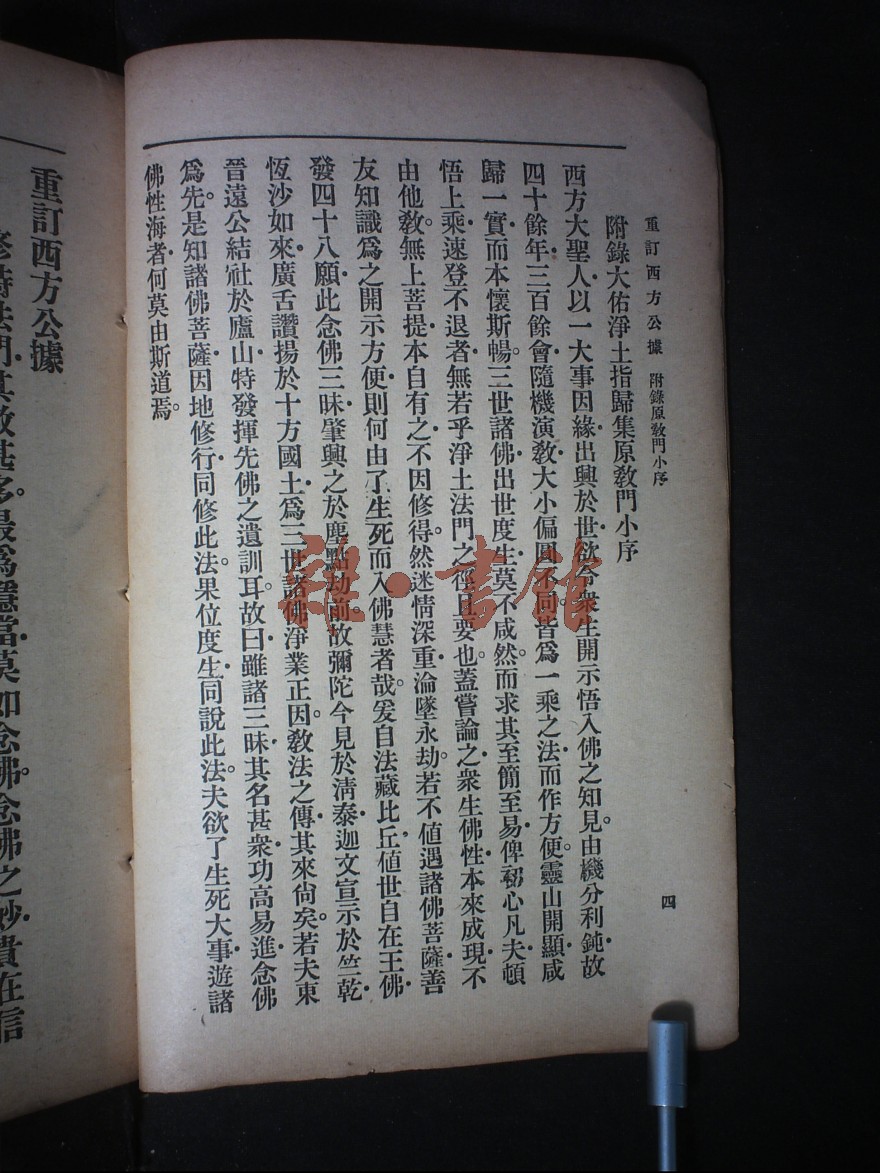 重訂西方公據 附錄原敎門小序
附錄大佑淨土指歸集原敎門小序
西方大聖人以一大事因緣出興於世欲令衆生開示悟入佛之知見。由機分利鈍故
四十餘年三百餘會隨機演敎大小偏圓不同皆爲一乘之法而作方便。靈山開顯咸
歸一實而本懷斯暢。三世諸佛出世度生莫不咸然而求其至簡至易俾剢心凡夫頓
悟上乘速登不退者無若乎淨土法門之徑且要也。蓋嘗論之衆生佛性本來成現不
由他敎。無上菩提本自有之不因修得。然迷情深重淪墜永劫。若不值遇諸佛菩薩善
友知識爲之開示方便則何由了生死而入佛慧者哉。爰自法藏比丘值世自在王佛
發四十八願此念佛三昧肇興之於塵點劫前。故彌陀今見於淸泰迦文宣示於竺乾
恆沙如來廣舌讚揚於十方國土爲三世諸佛淨業正因。敎法之傳其來尙矣。若夫東
晉遠公結社於廬山特發揮先佛之遺訓耳。故曰雖諸三昧其名甚衆功高易進念佛
爲先。是知諸佛菩薩因地修行同修此法果位度生同說此法。夫欲了生死大事遊諸
佛性海者何莫由斯道焉。
四
重訂西方公據
修持法門其數甚多。最爲穩當莫如念佛。念佛之妙貴在信
雜·書館